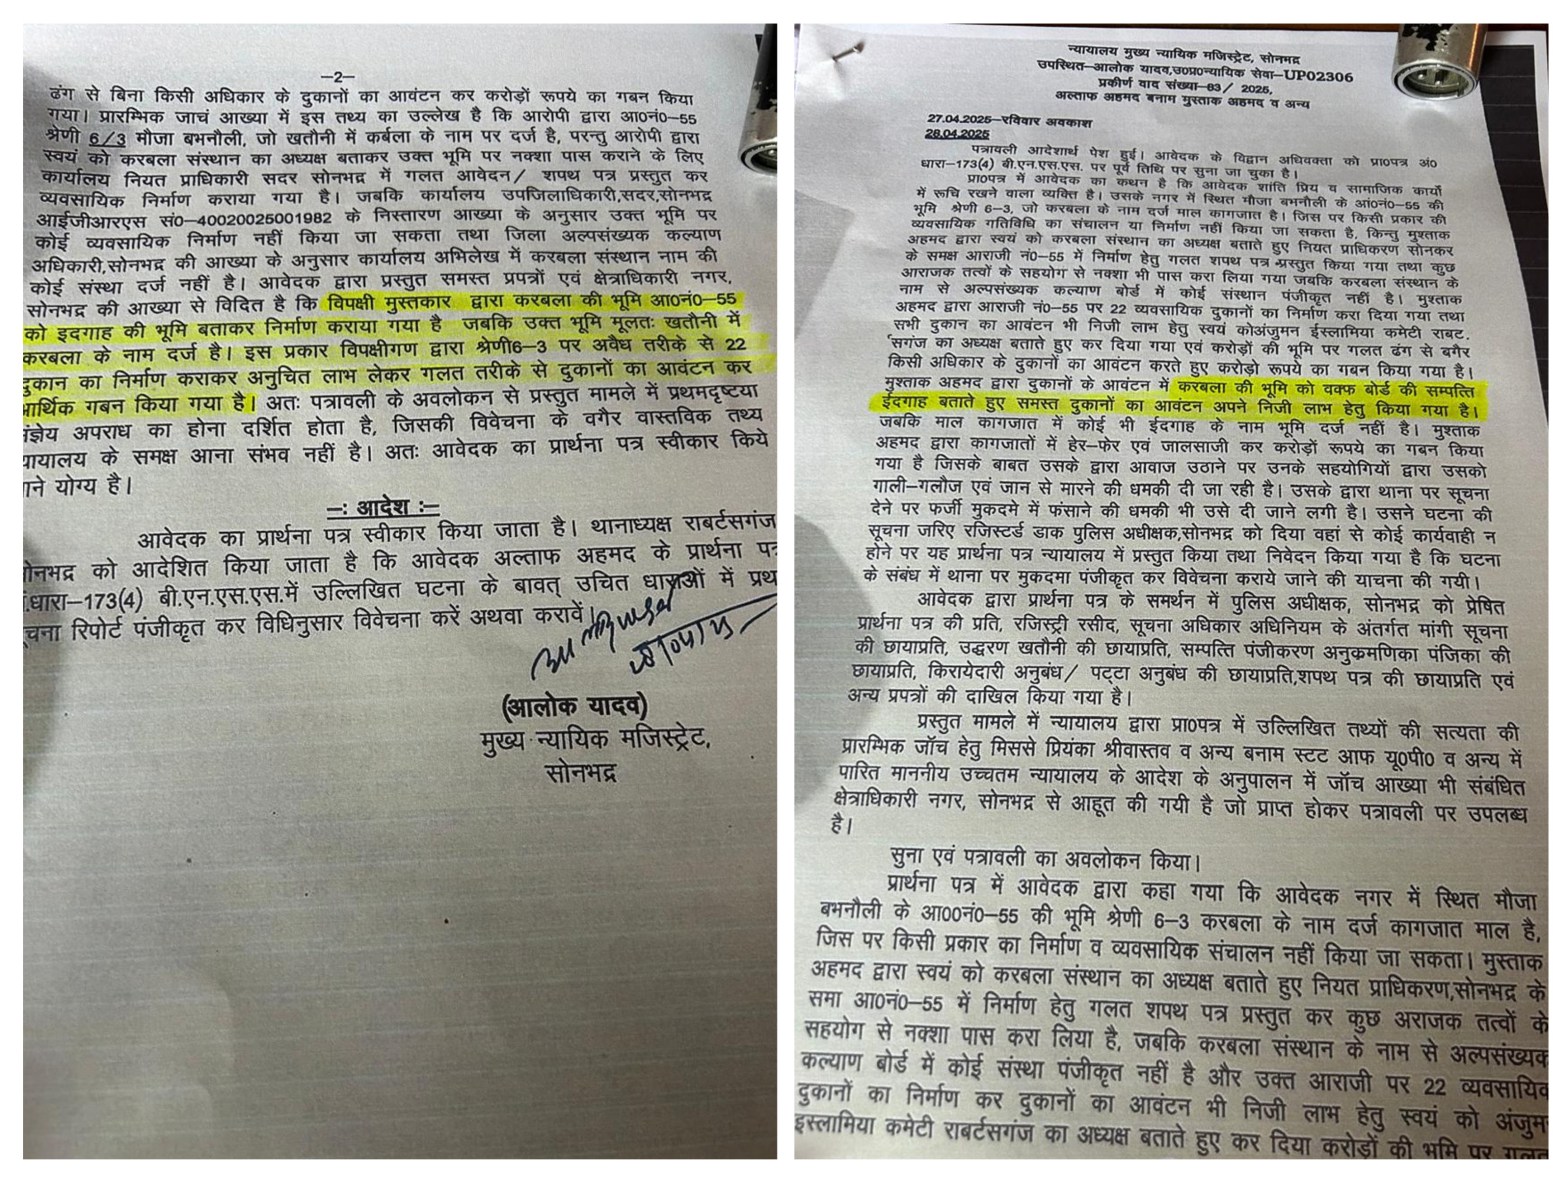 –2–
ढंग से बिना किसी अधिकार के दुकानों का आवंटन कर करोड़ों रूपये का गबन किया
गया। प्रारम्भिक जाचं आख्या में इस तथ्य का उल्लेख है कि आरोपी द्वारा आ0नं0–55
श्रेणी 6/3 मौजा बभनौली, जो खतौनी में कर्बला के नाम पर दर्ज है, परन्तु आरोपी द्वारा
स्वयं को करबला संस्थान का अध्यक्ष बताकर उक्त भूमि पर नक्शा पास कराने के लिए
कार्यालय नियत प्राधिकारी सदर सोनभद्र में गलत आवेदन/ शपथ पत्र प्रस्तुत कर
व्यवसायिक निर्माण कराया गया है। जबकि कार्यालय उपजिलाधिकारी,सदर,सोनभद्र
आईजीआरएस सं0–40020025001982 के निस्तारण आख्या के अनुसार उक्त भूमि पर
कोई व्यवसायिक निर्माण नहीं किया जा सकता तथा जिला अल्पसंख्यक कल्याण
अधिकारी,सोनभद्र की आख्या के अनुसार कार्यालय अभिलेख में करबला संस्थान नाम की
कोई संस्था दर्ज नहीं है। आवेदक द्वारा प्रस्तुत समस्त प्रपत्रों एवं क्षेत्राधिकारी नगर,
सोनभद्र की आख्या से विदित है कि विपक्षी मुस्तकार द्वारा करबला की भूमि आ0नं0–55
को इदगाह की भूमि बताकर निर्माण कराया गया है जबकि उक्त भूमि मूलतः खतौनी में
करबला के नाम दर्ज है। इस प्रकार विपक्षीगण द्वारा श्रेणी6–3 पर अवैध तरीके से 22
दुकान का निर्माण कराकर अनुचित लाभ लेकर गलत तरीके से दुकानों का आवंटन कर
आर्थिक गबन किया गया है। अतः पत्रावली के अवलोकन से प्रस्तुत मामले में प्रथमदृष्टया
संज्ञेय अपराध का होना दर्शित होता है, जिसकी विवेचना के वगैर वास्तविक तथ्य
न्यायालय के समक्ष आना संभव नहीं है। अतः आवेदक का प्रार्थना पत्र स्वीकार किये
जाने योग्य है।
–: आदेश :–
आवेदक का प्रार्थना पत्र स्वीकार किया जाता है। थानाध्यक्ष राबर्टसगंज
सोनभद्र को आदेशित किया जाता है कि आवेदक अल्ताफ अहमद के प्रार्थना पत्र
धारा–173(4) बी.एन.एस.एस.में उल्लिखित घटना के बावत् उचित धाराओं में प्रथम
सूचना रिपोर्ट पंजीकृत कर विधिनुसार विवेचना करें अथवा करावें।
(आलोक यादव)
मुख्य न्यायिक मजिस्ट्रेट,
सोनभद्र
न्यायालय मुख्य न्यायिक मजिस्ट्रेट, सोनभद्र
उपस्थित–आलोक यादव,उ0प्र0न्यायिक सेवा–UP02306
प्रकीर्ण वाद संख्या–83/ 2025,
अल्ताफ अहमद बनाम मुस्ताक अहमद व अन्य
27.04.2025–रविवार अवकाश
28.04.2025
पत्रावली आदेशार्थ पेश हुई। आवेदक के विद्वान अधिवक्ता को प्रा0पत्र अं0
धारा–173(4) बी.एन.एस.एस. पर पूर्व तिथि पर सुना जा चुका है।
प्रा0पत्र में आवेदक का कथन है कि आवेदक शांति प्रिय व सामाजिक कार्यो
में रूचि रखने वाला व्यक्ति है। उसके नगर में स्थित मौजा बभनौली के आं0नं0–55 की
भूमि श्रेणी 6–3, जो करबला के नाम दर्ज माल कागजात है। जिस पर किसी प्रकार की
व्यवसायिक गतिविधि का संचालन या निर्माण नहीं किया जा सकता है, किन्तु मुश्ताक
अहमद द्वारा स्वयं को करबला संस्थान का अध्यक्ष बताते हुए नियत प्राधिकरण सोनकर
के समक्ष आराजी नं0–55 में निर्माण हेतु गलत शपथ पत्र प्रस्तुत किया गया तथा कुछ
आराजक तत्वों के सहयोग से नक्शा भी पास करा लिया गया जबकि करबला संस्थान के
नाम से अल्पसंख्यक कल्याण बोर्ड में कोई संस्थान पंजीकृत नहीं है। मुश्ताक
अहमद द्वारा आराजी नं0–55 पर 22 व्यवसायिक दुकानों का निर्माण करा दिया गया तथा
सभी दुकान का आवंटन भी निजी लाभ हेतु स्वयं कोअंजुमन ईस्लामिया कमेटी राबट.
सगंज का अध्यक्ष बताते हुए कर दिया गया एवं करोड़ों की भूमि पर गलत ढंग से बगैर
किसी अधिकार के दुकानों का आवंटन करते हुए करोड़ो रूपये का गबन किया गया है।
मुश्ताक अहमद द्वारा दुकानों के आवंटन में करबला की भूमि को वक्फ बोर्ड की सम्पत्ति
ईदगाह बताते हुए समस्त दुकानों का आवंटन अपने निजी लाभ हेतु किया गया है।
जबकि माल कागजात में कोई भी ईदगाह के नाम भूमि दर्ज नहीं है। मुश्ताक
अहमद द्वारा कागजातों में हेर–फेर एवं जालसाजी कर करोड़ों रूपये का गबन किया
गया है जिसके बाबत उसके द्वारा आवाज उठाने पर उनके सहयोगियों द्वारा उसको
गाली–गलौज एवं जान से मारने की धमकी दी जा रही है। उसके द्वारा थाना पर सूचना
देने पर फर्जी मुकदमे में फंसाने की धमकी भी उसे दी जाने लगी है। उसने घटना की
सूचना जरिए रजिस्टर्ड डाक पुलिस अधीक्षक,सोनभद्र को दिया वहां से कोई कार्यवाही न
होने पर यह प्रार्थना पत्र न्यायालय में प्रस्तुत किया तथा निवेदन किया गया है कि घटना
के संबंध में थाना पर मुकदमा पंजीकृत कर विवेचना कराये जाने की याचना की गयी।
आवेदक द्वारा प्रार्थना पत्र के समर्थन में पुलिस अधीक्षक, सोनभद्र को प्रेषित
प्रार्थना पत्र की प्रति, रजिस्ट्री रसीद, सूचना अधिकार अधिनियम के अंतर्गत मांगी सूचना
की छायाप्रति, उद्धरण खतौनी की छायाप्रति, सम्पत्ति पंजीकरण अनुक्रमणिका पंजिका की
छायाप्रति, किरायेदारी अनुबंध/ पट्टा अनुबंध की छायाप्रति,शपथ पत्र की छायाप्रति एवं
अन्य प्रपत्रों की दाखिल किया गया है।
प्रस्तुत मामले में न्यायालय द्वारा प्रा0पत्र में उल्लिखित तथ्यों की सत्यता की
प्रारम्भिक जॉच हेतु मिससे प्रियंका श्रीवास्तव व अन्य बनाम स्टट आफ यू0पी0 व अन्य में
पारित माननीय उच्चतम न्यायालय के आदेश के अनुपालन में जॉच आख्या भी संबंधित
क्षेत्राधिकारी नगर, सोनभद्र से आहूत की गयी है जो प्राप्त होकर पत्रावली पर उपलब्ध
है।
सुना एवं पत्रावली का अवलोकन किया।
प्रार्थना पत्र में आवेदक द्वारा कहा गया कि आवेदक नगर में स्थित मौजा
बभनौली के आ00नं0–55 की भूमि श्रेणी 6–3 करबला के नाम दर्ज कागजात माल है,
जिस पर किसी प्रकार का निर्माण व व्यवसायिक संचालन नहीं किया जा सकता। मुस्ताक
अहमद द्वारा स्वयं को करबला संस्थान का अध्यक्ष बताते हुए नियत प्राधिकरण,सोनभद्र के
समा आ0नं0–55 में निर्माण हेतु गलत शपथ पत्र प्रस्तुत कर कुछ अराजक तत्वों के
सहयोग से नक्शा पास करा लिया है, जबकि करबला संस्थान के नाम से अल्पसंख्यक
कल्याण बोर्ड में कोई संस्था पंजीकृत नहीं है और उक्त आराजी पर 22 व्यवसायिक
दुकानों का निर्माण कर दुकानों का आवंटन भी निजी लाभ हेतु स्वयं को अंजुमन
इस्लामिया कमेटी राबर्टसगंज का अध्यक्ष बताते हुए कर दिया करोड़ों की भूमि पर गलत